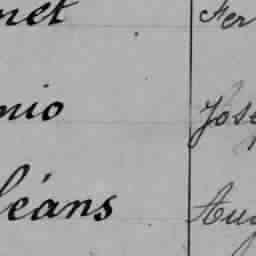 net Fer
nio José
léans Aug